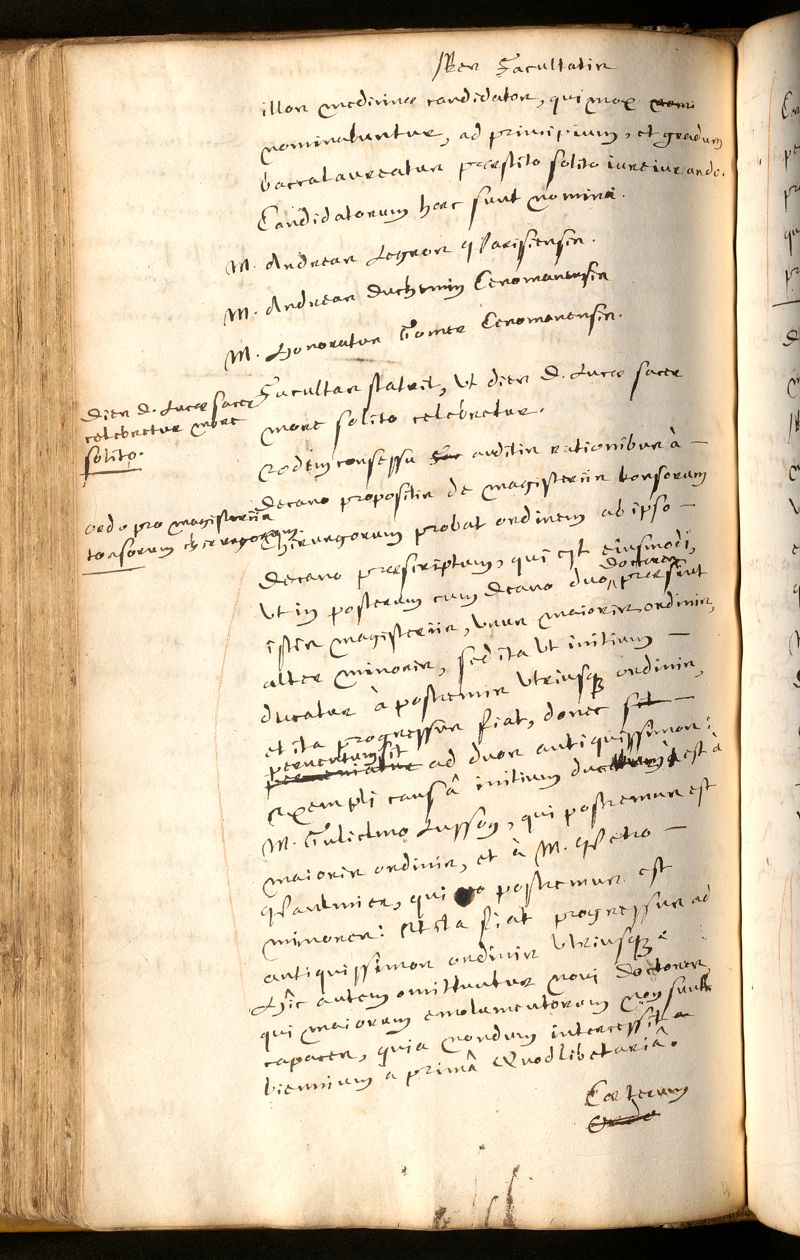 Res Facultatis
illos medicinæ candidatos, qui mox nom
nominabuntur, ad principium, et gradum
baccalaureatus præstito solito iureiurando.
Candidatorum hæc sunt nomina.
M. Andreas Legros Parisiensis.
M. Andreas Duchemin Cenomanensis
M. Honoratus Gomer Cenomanensis.
Dies D. Lucæ sacer
celebretur more
solito.
Facultas statuit, ut dies D. Lucæ sacer
more solito celebretur.
Ordo pro magisteriis
tonsorum chirurgorum.
Eodem consessu auditis rationibus à
decano propositis de magisteriis tonsorum
Chirurgorum probat ordinem ab ipso
decano præscriptum, qui est eiusmodi,
Ut in posterum cum decano duo doctores præsint
istis magisteriis, unus maioris ordinis,
alter minoris, sed ita ut initium
ducatur à postremis utriusq ordinis,
et ita progressus fiat, donec sit
perventum sit
ad duos antiquissimos:
exempli causâ initium est à
M. Gulielmo Lusson, qui postremus est
maioris ordinis, et à M. Petro
Paulmier, qui postremus est
minores: et ita fiat progressus ad
antiquissimos ordinis utriusq
Hîc autem omittuntur novi doctores,
qui maiorum emolumentorum non sunt
capaces, quia nondum intercessit
biennium a primâ Quodlibetariâ.
Cæterum
Ordo